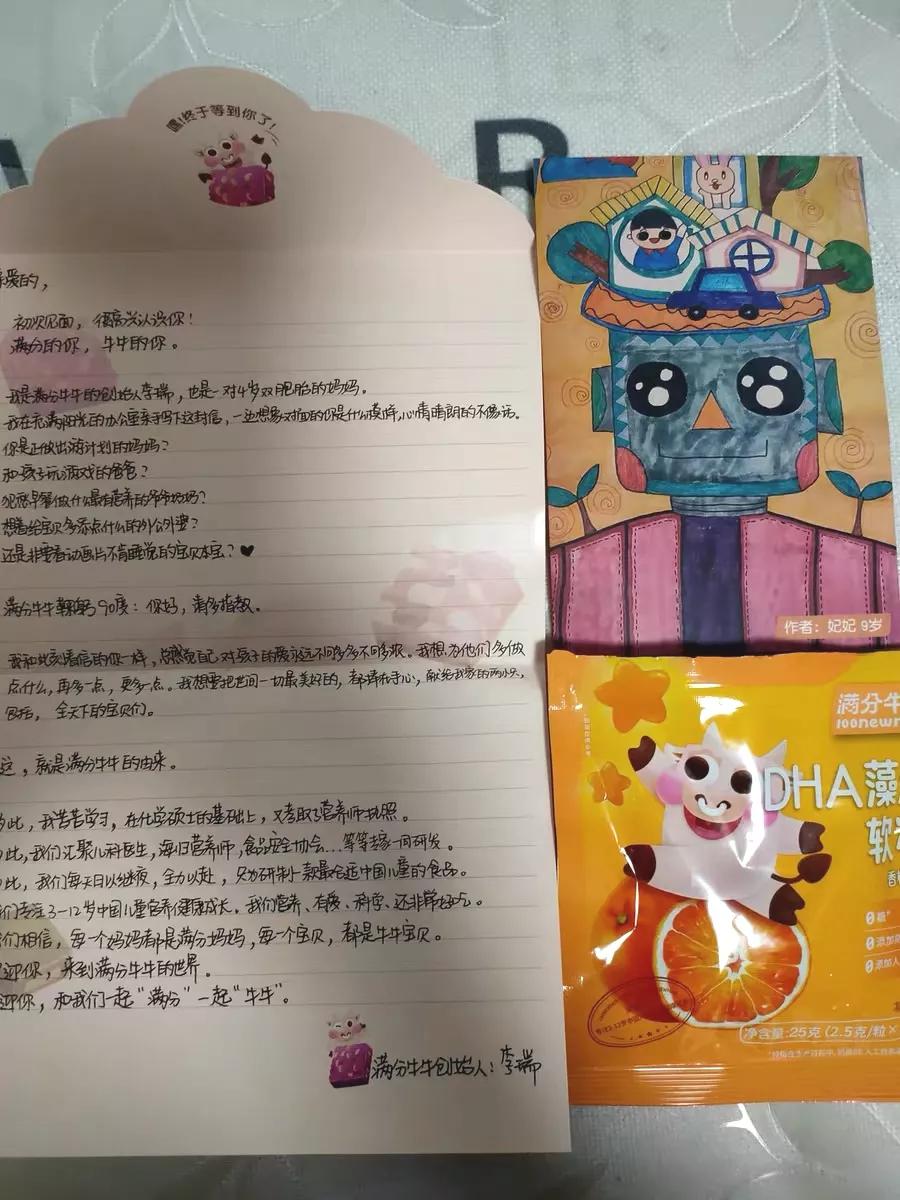 嘿!终于等到你了!
亲爱的,
初次见面，很高兴认识你!
满分的你，牛牛的你。
我是满分牛牛的创始人李瑞，也是一对4岁双胞胎的妈妈。
我在充满阳光的办公室亲手写下这封信，一边想象对面的你是什么模样,心情晴朗的不像话。
你是正做出游计划的妈妈?
和孩子玩游戏的爸爸?
犯愁早餐做什么最有营养的爷爷奶奶?
想着给宝贝多添点什么的外公外婆?
还是非要看动画片不肯睡觉的宝贝本宝?
满分牛牛鞠躬90度：你好，请多指教。
我和此刻看信的你一样，总感觉自己对孩子的爱永远不回多多不回多求。我想为他们多做
点什么，再多一点，更多一点。我想要把世间一切最美好的，都捧在手心，献给我家的两小只，
包括，全天下的宝贝们。
这，就是满分牛牛的由来。
为此，我苦苦学习，在化学硕士的基础上，又考取了营养师执照。
为此,我们汇聚儿科医生，海归营养师，食品安全协会...等等专家一同研发。
为此，我们每天日以继夜，全力以赴，只为研制一款最合适中国儿童的食品。
我们专注3-12岁中国儿童营养健康成长。我们营养、有爱、科学、还非常好吃。
我们相信，每一个妈妈都是满分妈妈，每一个宝贝，都是牛牛宝贝。
欢迎你，来到满分牛牛的世界。
欢迎你，和我们一起“满分”一起“牛牛”。
满分牛牛创始人：李瑞
作者：妃妃 9岁
满分牛
100newn
DHA藻
软
香
0糖
0添加
0添加人
净含量:25克(2.5克/粒×